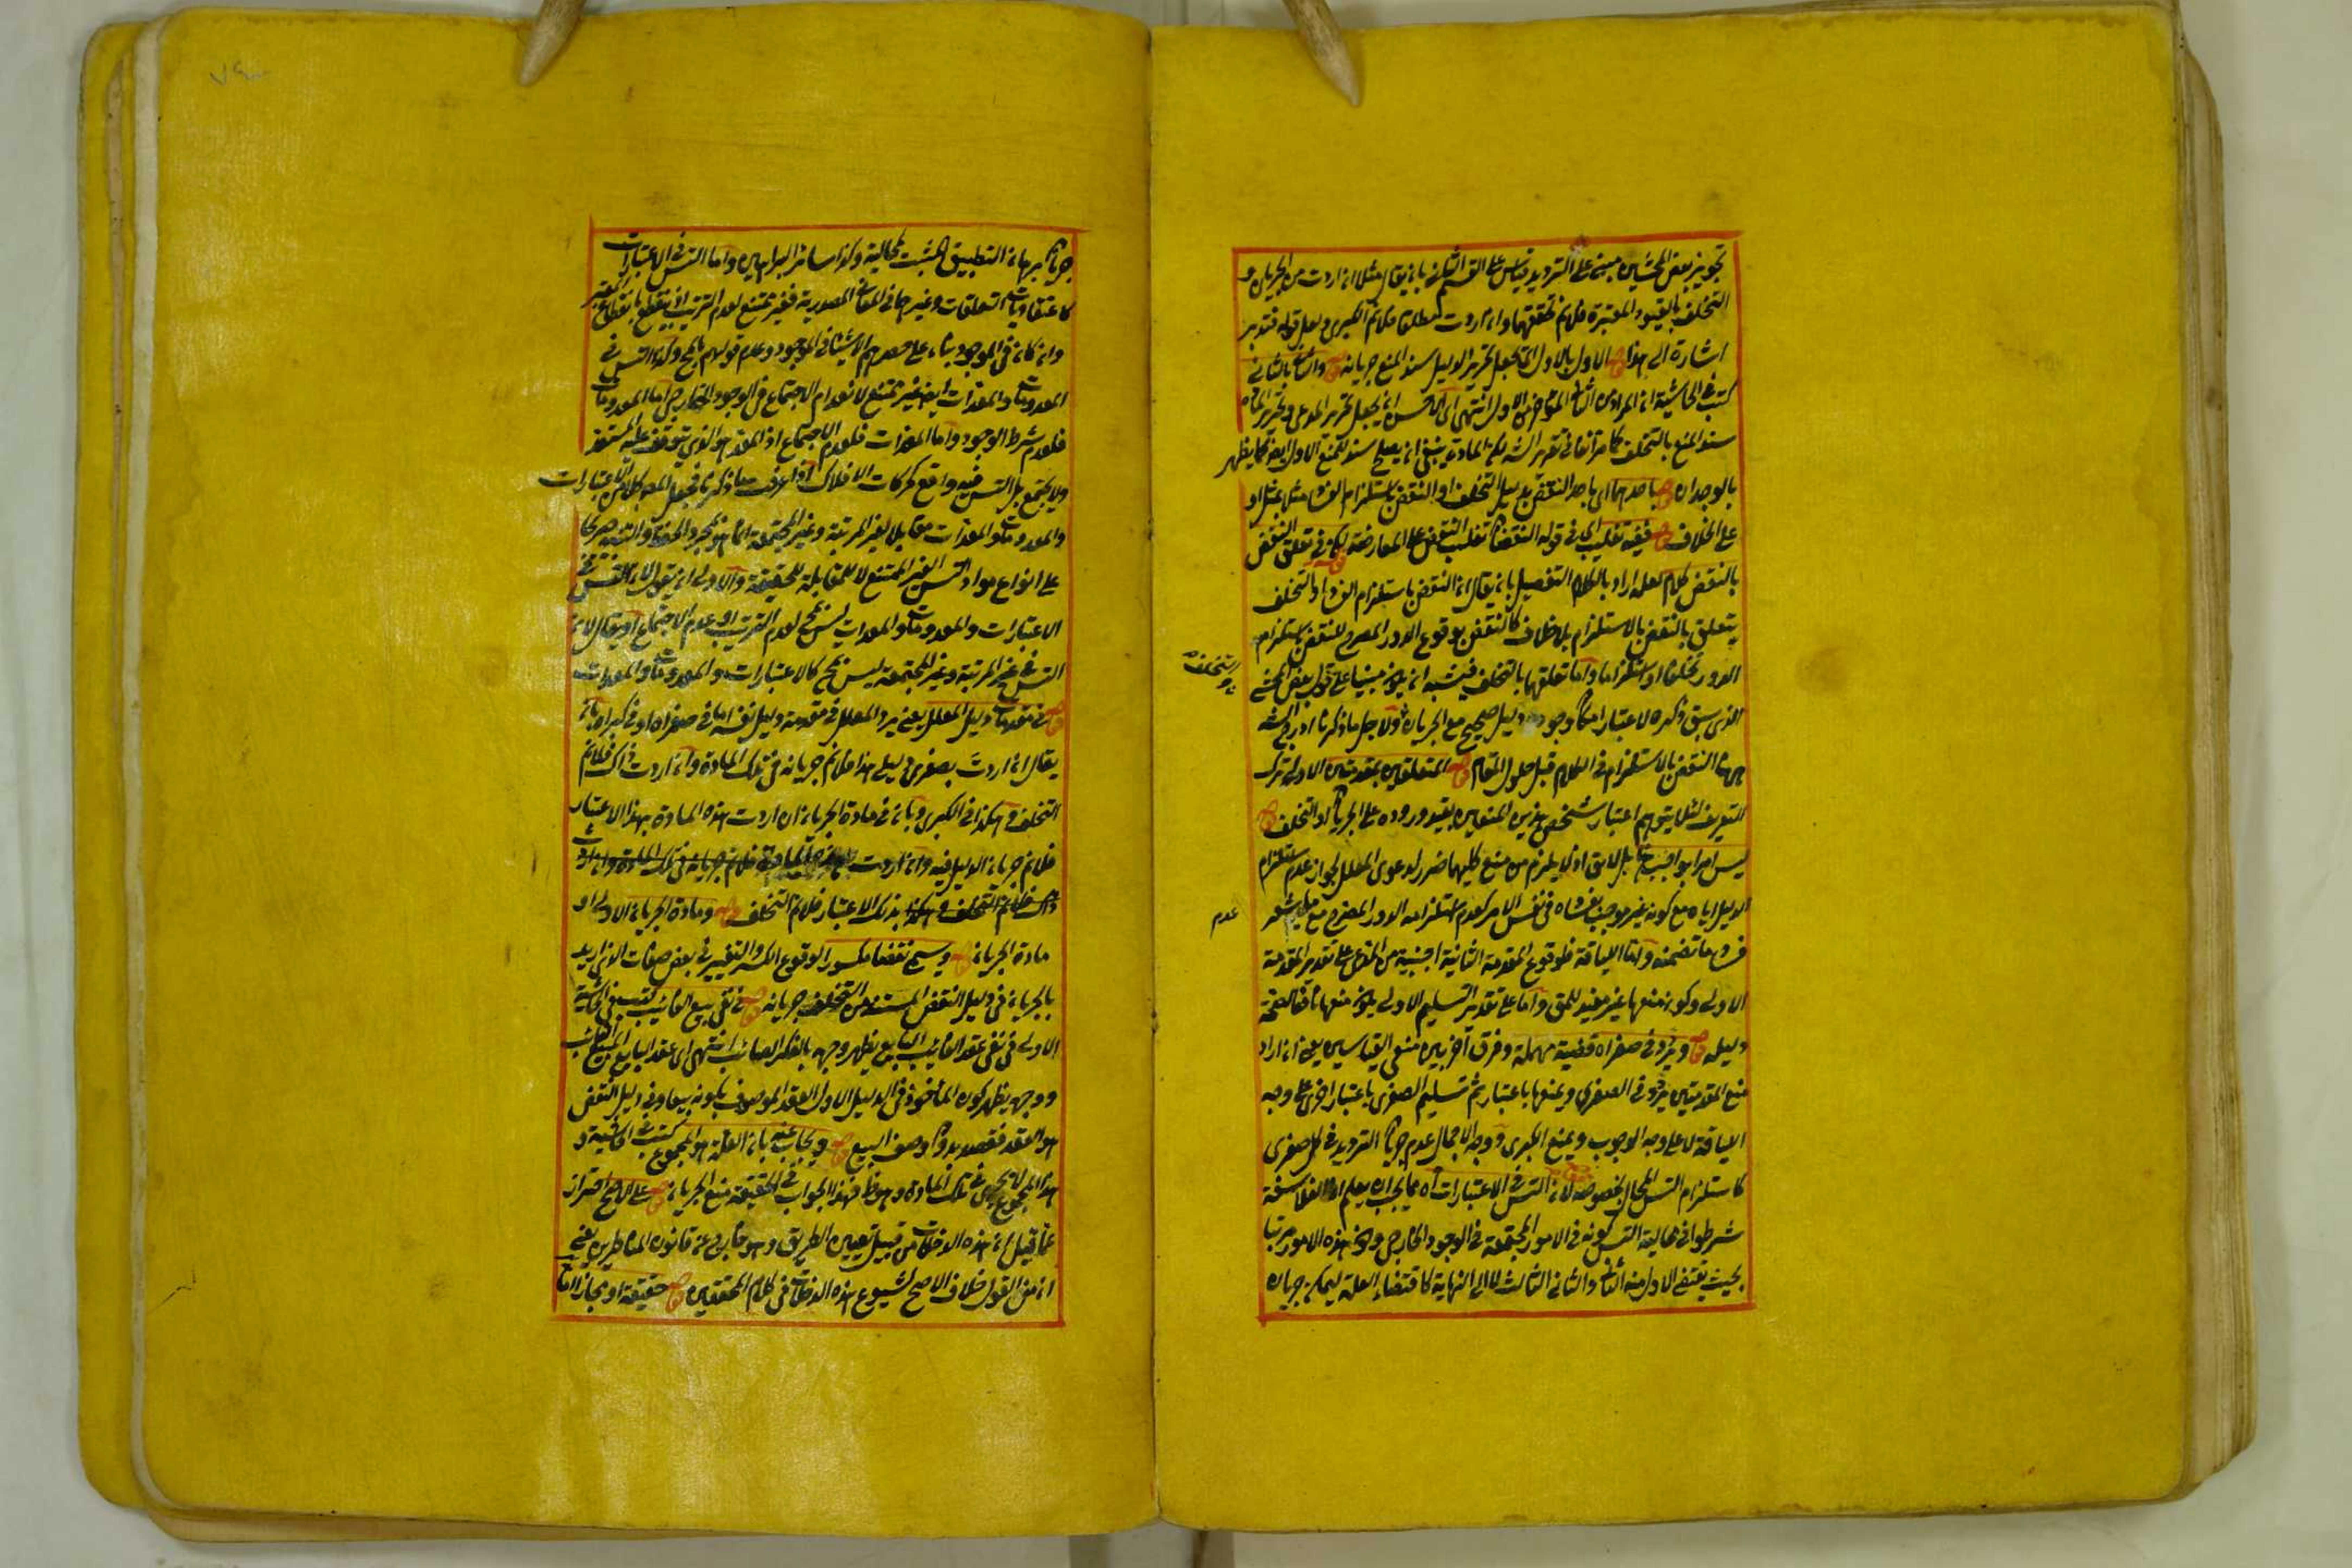 تجويز بعض المحشين مبني على الترديد وقس على القسم الثاني بان يقال مثلا ان اردت من الجريان و
التخلف بالقيود المعتبرة فلانم تحققهما وان اردت مطلقا فلانم الكبرى ولعل قوله فتدبر
اشارة الى هذا قوله الاول بالاول اى يجعل تحرير الدليل سند المنع جريانه قوله والثاني بالثاني
كتب في الحاشية ان المراد من الثاني المؤخر من الاول انتهى اى الاحسن ان يجعل تحرير المدعى وتحرير المادة
سند المنع بالتخلف كما مر آنفا في تقرير الشه لكن المادة ينبغي ان يصلح سندا لمنع الاول ايضا كما يظهر
بالوجدان قوله باحدهما اى باحد النقض بدليل التخلف او النقض باستلزام الفساد مثل بمثل او
على الخلاف قوله ففيه تغليب اى في قوله النقضان تغليب النقض على المعارضة لكن في تعلق النقض
بالنقض كلام لعله اراد بالكلام التفصيل بان يقال ان النقض باستلزام الفساد او التخلف
يتعلق بالنقض بالاستلزام بلا خلاف كالنقض بوقوع الدور المصرح للنقض باستلزام
الدور تخلفا او استلزاما واما تعلقهما بالتخلف فيشبه ان يكون مبنيا على قول بعض المحشي
الذي سبق ذكره لاعتبار امكان وجود دليل صحيح مع الجريان ولاجل ما ذكرنا ادرج المحشي
ههنا النقض بالاستلزام في الكلام قبل حلول المقام قوله المتعلقين بمقدمتين الاولى ترك
التعريف لئلا يتوهم اعتبار شخص هذين المنعين بقيد وروده على الجريان او التخلف قوله
ليس امرا بواجب بل لائق اذ لا يلزم من منع كليهما ضرر لدعوى المعلل لجواز عدم استلزام
الدليل اياه مع كونه غير موجب بفساده في نفس الامر كعدم استلزامه الدور المصرح مع
عدم
فساد ما تضمنه واما اللياقة فلوقوع المقدمة الثانية اجنبية من المدعى على تقدير المقدمة
الاولى وكون منعها غير مفيد للمنع واما على تقدير التسليم الاولى يكون منعها نافعا لصحة
دليله قوله ويردد في صغراه قضية مهملة وفرق آخر بين منعي القياسين يعني ان اراد
منع المقدمتين يردد في الصغرى ويمنعها باعتبار ثم تسليم الصغرى باعتبار اخر على وجه
اللياقة لا على وجه الوجوب ويمنع الكبرى ووجه الاجمال عدم جريان الترديد في كل صغرى
كاستلزام التس المحال بخصوصه لان التس في الاعتبارات اه مما يجب ان يعلم ان الفلاسفة
شرطوا في محالية التس كونه في الامور المجتمعة في الوجود الخارجي وكون هذه الامور مرتبا
بحيث يقتضي الاول منه الثاني والثاني الثالث الى لا النهاية كاقتضاء العلة ليمكن جريان
جريان برهان التطبيق المثبت لمحالية وكذا سائر البراهين واما التس في الاعتبارات
كاعتقاديات التعلقات وغيرها في المعاني المصدرية فغير ممتنع لعدم الترتيب اذ ينقطع بانقطاع المعتبر
وان كان في الموجود بناء على حصرهم الاشياء في الموجود وعدم قولهم بالحال وكذا التس في
المعدومات والمعدات ايضا غير ممتنع لانعدام الاجتماع في الوجود الخارجي اما المعدومات
فلعدم شرط الوجود واما المعدات فلعدم الاجتماع اذ المعد هو الذي يتوقف عليه المستعد
ولا يجتمع بل التس فيه واقع كحركات الافلاك اذا عرفت ما ذكرنا فجعل المصه كلا من الاعتبارات
والمعدومات والمعدات مقابلا لغير المرتبة وغير المجتمعة انما هو لمجرد الخفاء والتنبيه صريحا
على انواع مواد التس الغير الممتنع لا للمقابلة الحقيقية والاولى ان يقول لان التس في
الاعتبارات والمعدومات والمعدات ليس بمح لعدم الترتيب او عدم الاجتماع او يقال لان
التس في غير المرتبة وغير المجتمعة ليس بمح كالاعتبارات والمعدومات والمعدات
قوله في مقدمات دليل المعلل يعني يرد المعلل في مقدمة دليل نفسه اما في صغراه او في كبراه بان
يقال ان اردت بصغرى دليلي هذا فلانم جريانه في تلك المادة وان اردت ذاك فلانم
التخلف وهكذا في الكبرى وبان في مادة الجريان ان اردت هذه المادة بهذا الاعتبار
فلانم جريان الدليل فيه وان اردت فلانم جريانه في تلك المادة وان اردت
ذاك فلانم التخلف وهكذا بذلك الاعتبار فلانم التخلف قوله ومادة الجريان الاولى او
مادة الجريان قوله ويسمى نقضا مكسورا لوقوع الكسر والتغيير في بعض صفات الذي اريد
بالجريان في دليل النقض المستند من التخلف جريانه قوله في نفي بيع الغائب كتب في الحاشية
الاولى في نفي عقد الغائب البايع يظهر وجهه بالفكر الصائب انتهى اى عقد البايع المبيع الغائب
ووجهه يظهر كون المأخوذ في الدليل الاول العقد الموصوف بكونه بيعا وفي دليل النقض
هو العقد فقصد بدون وصف البيع قوله ويجاب عنه بان العلة هو المجموع كتب في الحاشية و
هذا المجموع لا يجرى في تلك المادة وهو ظ فهذا الجواب في الحقيقة منع الجريان قوله على الاصح احتراز
عما قيل ان هذه الدخلات من قبيل تعيين الطريق وهو خارج عن قانون المناظرين يعني
ان من القول خلاف الاصح لشيوع هذه الدخلات في كلام المحققين قوله حقيقة او مجازا